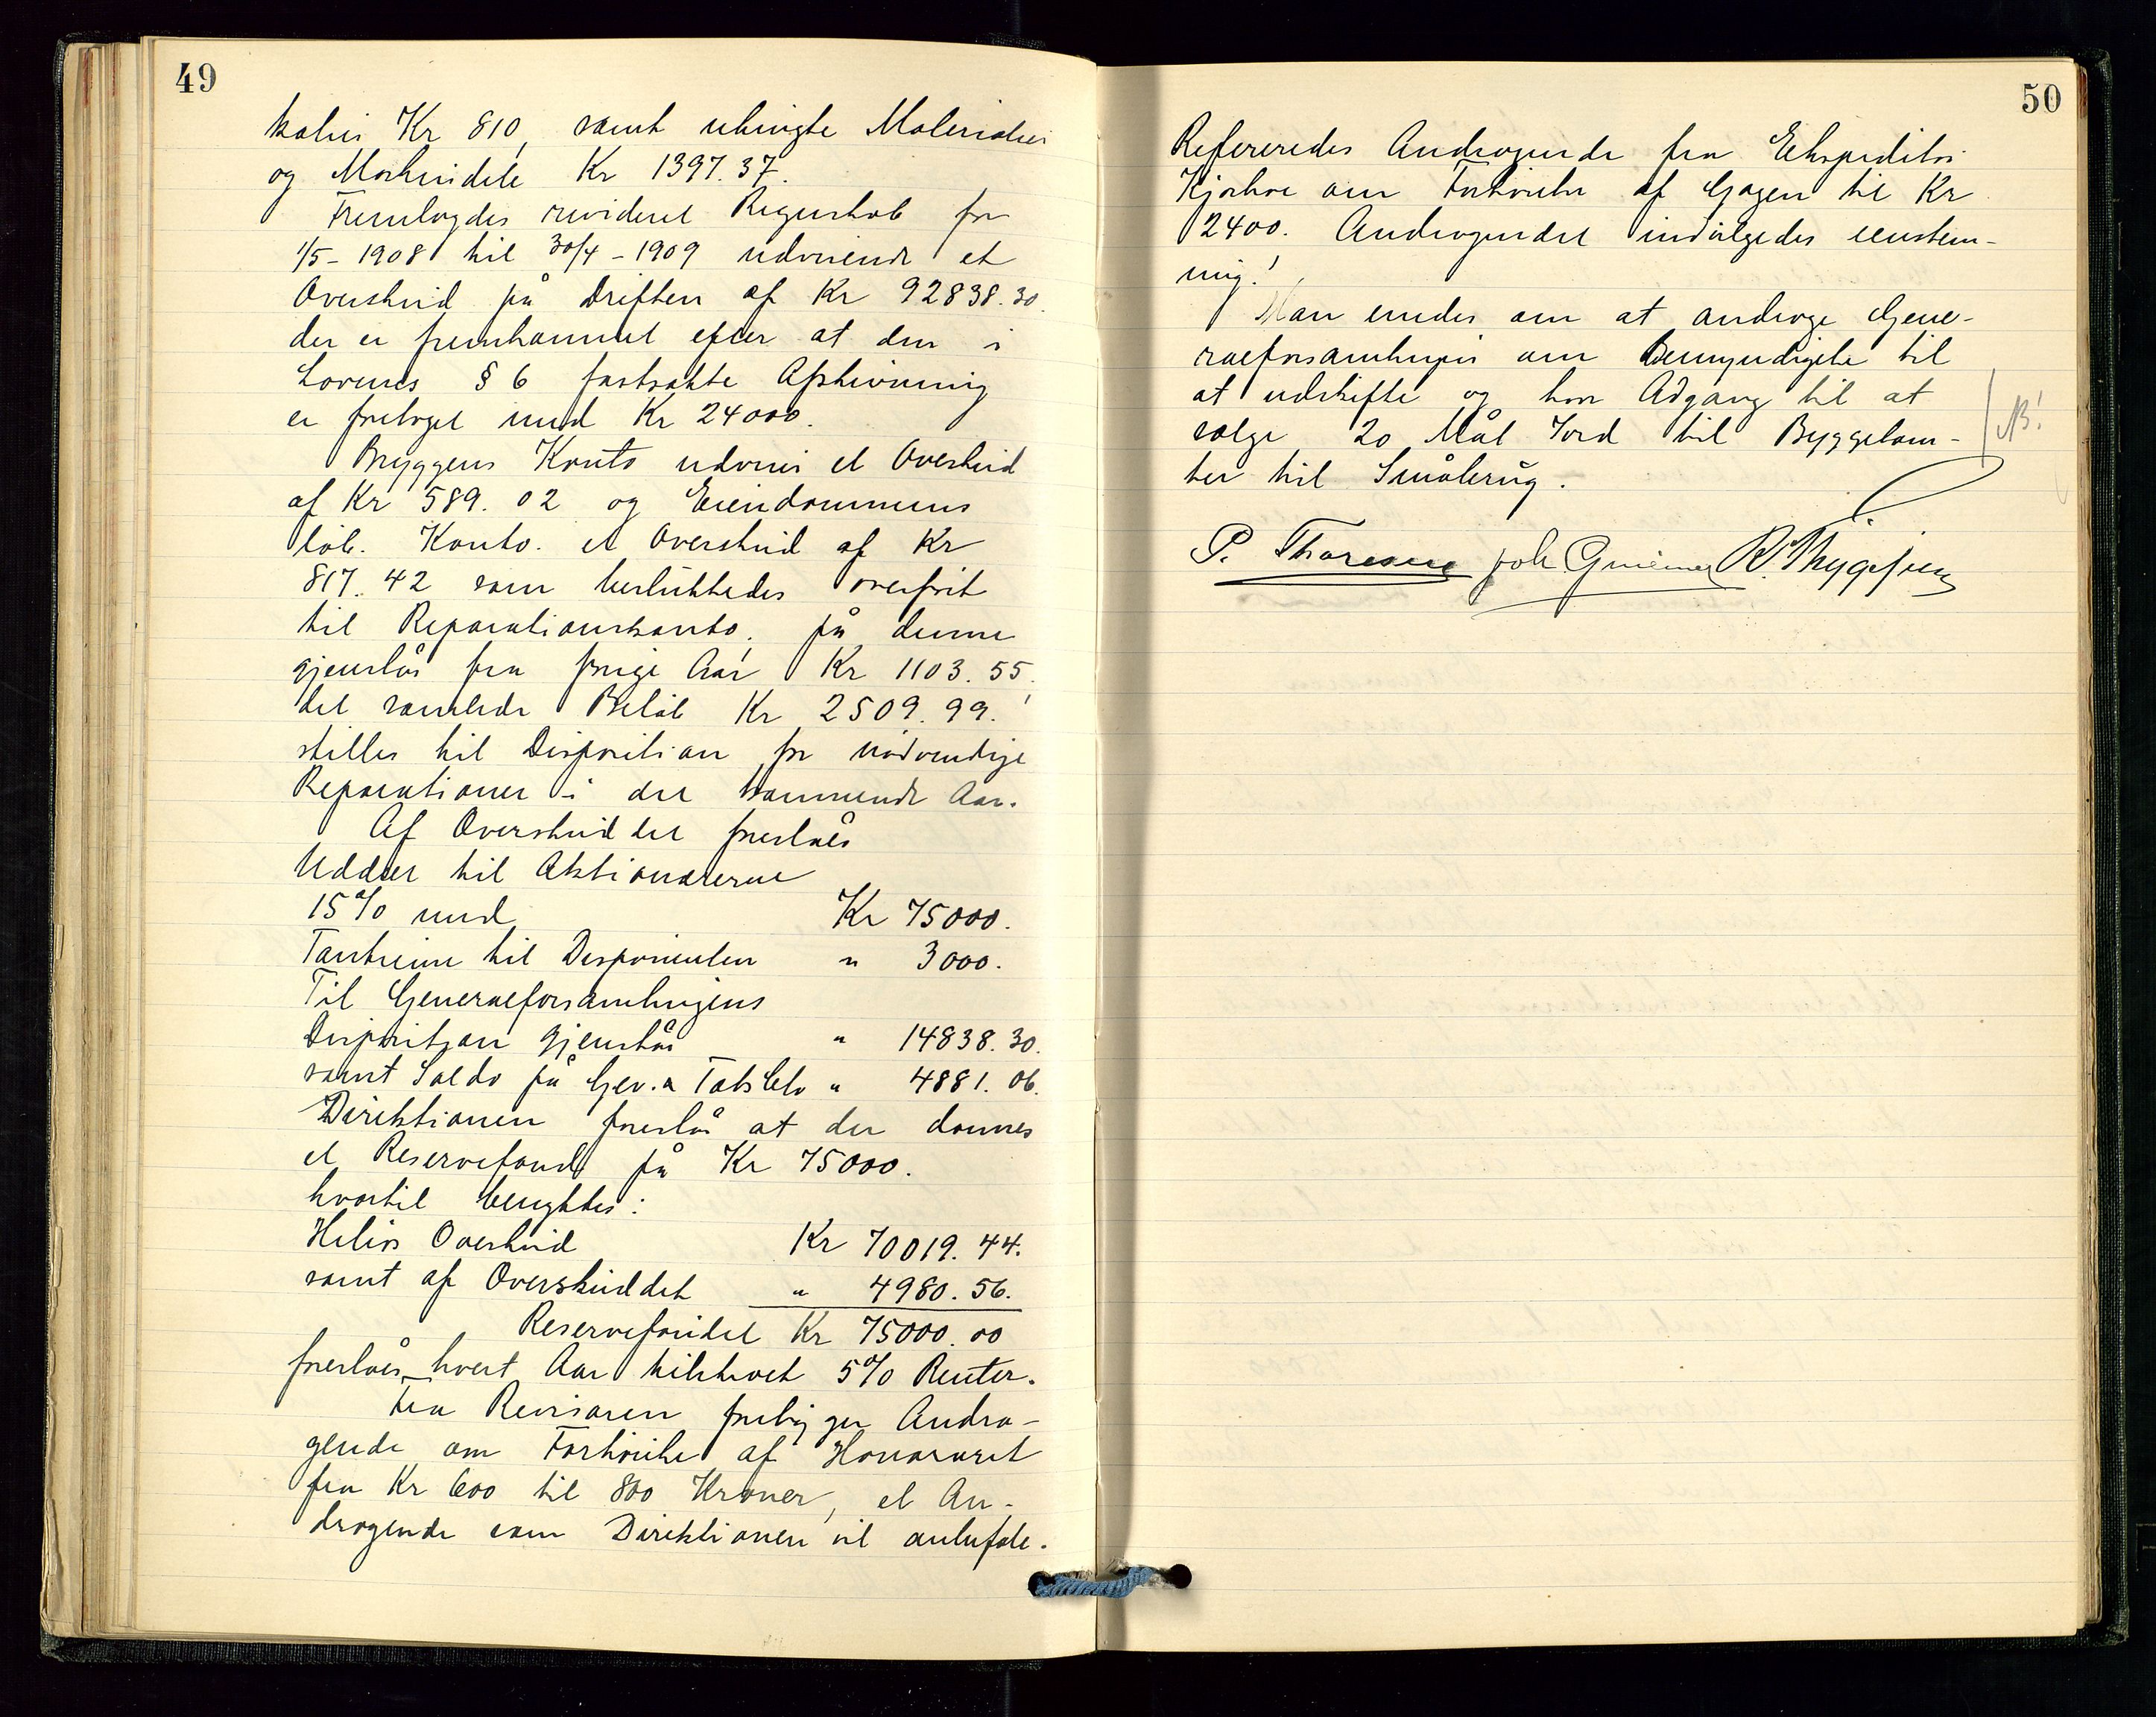 49
Kr 810, samt ubrugte Materialier
og Maskindele Kr 1397.37.
Fremlagdes revideret Regnskab for
1/5 - 1908 til 30/4 - 1909 udvisende et
Overskud på Driften af Kr 92838.30.
der er fremkommet efter at den i
Lovenes § 6 fastsatte Afskrivning
er foretaget med Kr 24000.
Bryggens Konto udviser et Overskud
af Kr 589.02 og Eiendommens
løb. Konto. et Overskud af Kr
817.42 som besluttedes overført
til Reparationskonto, på denne
gjenstår fra forrige Aar Kr 1103.55.
det samlede Beløb Kr 2509.99.
stilles til Disposition for nødvendige
Reparationer i det kommende Aar.
Af Overskuddet foreslåes
Uddelt til Aktionærerne
15% med Kr 75000.
Tantieme til Disponenten " 3000.
Til Generalforsamlingens
Disposition gjenstår " 14838.30.
samt Saldo på Gev. & Tabs Cto " 4881.06.
Direktionen foreslår at der dannes
et Reservefond på Kr 75000.
hvortil benyttes:
Overskud Kr 70019.44.
samt af Overskuddet " 4980.56.
Reservefondet Kr 75000.00
foreslåes hvert Aar tilskrevet 5% Renter.
Fra Revisoren foreligger Andra-
gende om Forhøielse af Honoraret
fra Kr 600 til 800 Kroner, et An-
dragende som Direktionen vil anbefale.
50
Refereredes Andragende fra Ekspeditør
om Forhøielse af Gagen til Kr
2400. Andragendet indvilgedes eenstem-
mig!
Man enedes om at andrage Gene-
ralforsamlingen om Bemyndigelse til
at udskifte og have Adgang til at
sælge 20 Mål Jord til Byggetom-
ter til Småbrug.
NB!
P. Thoresen Joh. R. Thygesen